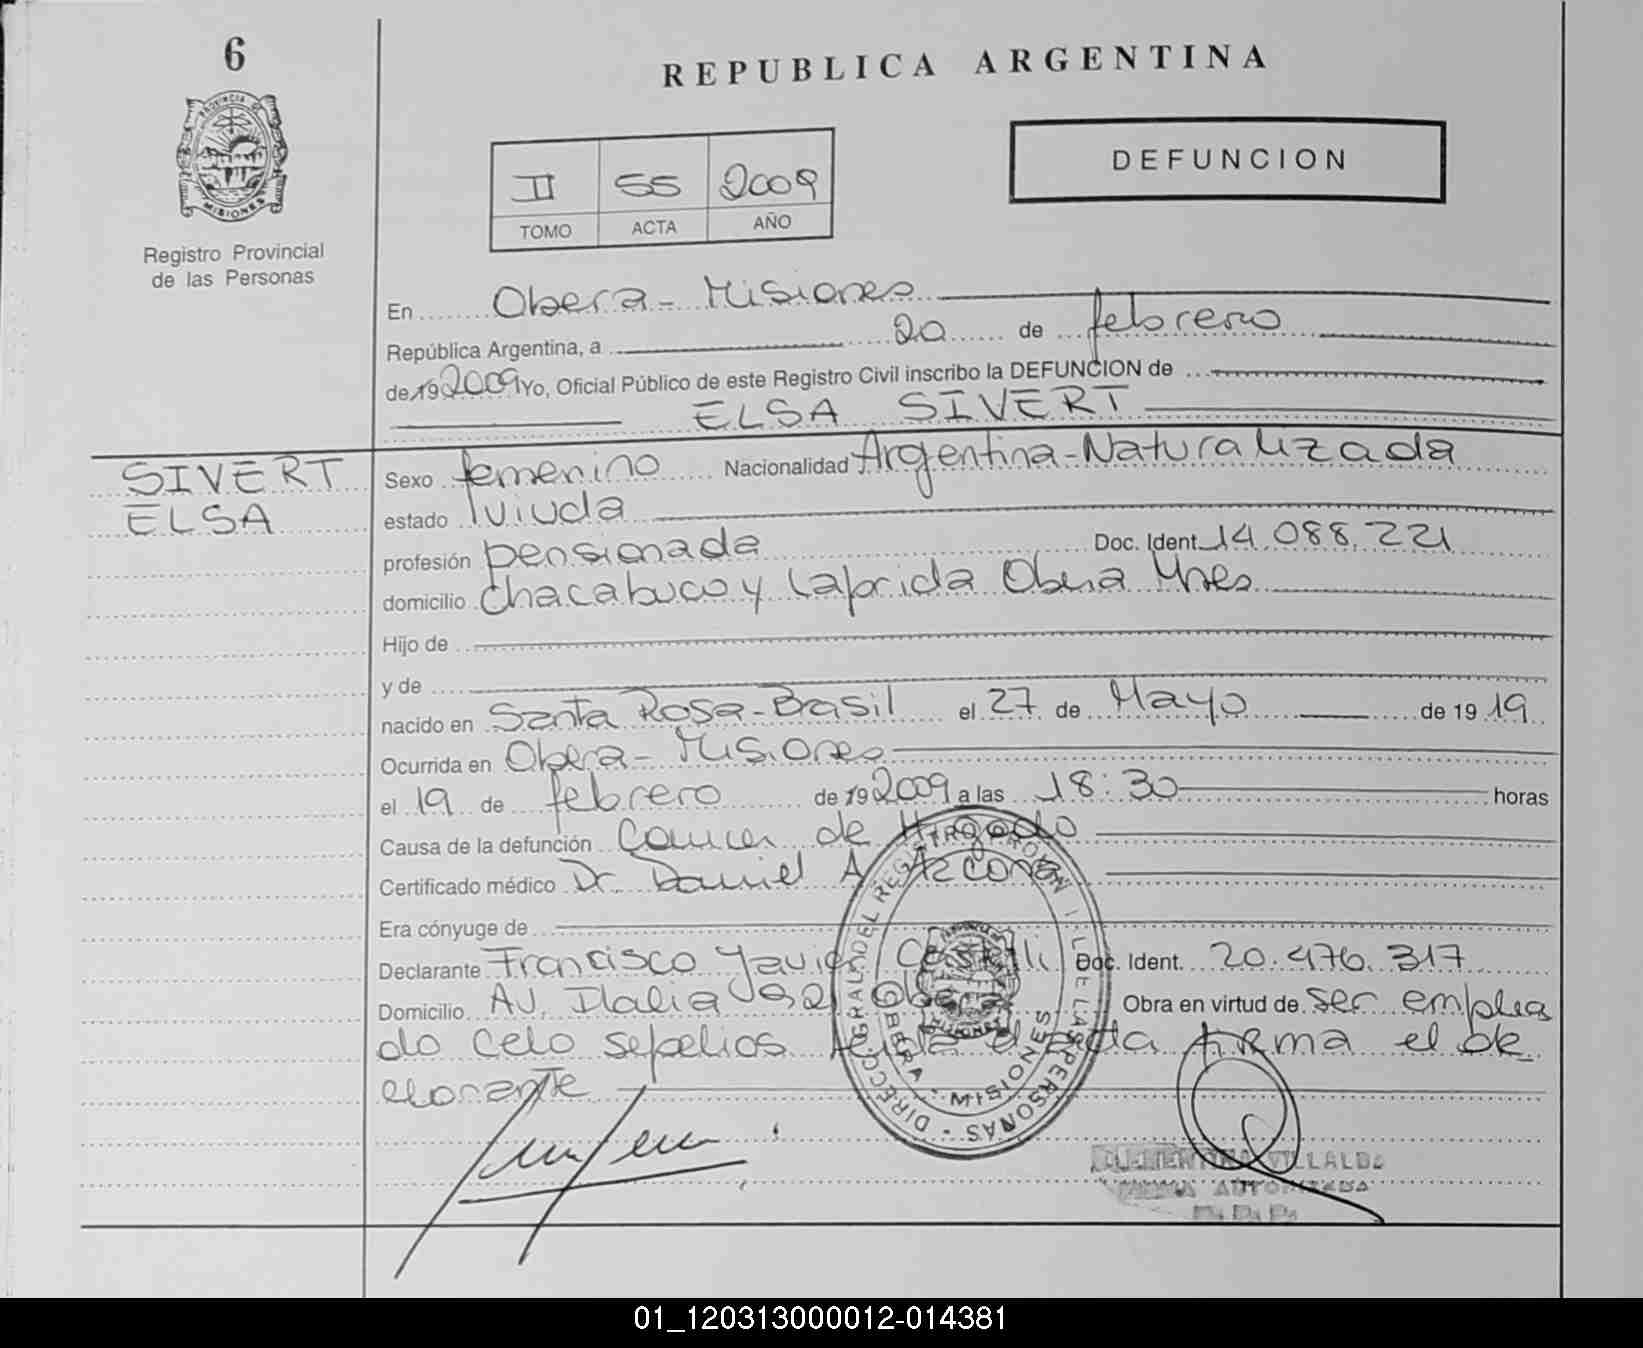 6
REPUBLICA ARGENTINA
PROVINCIA DE
MISIONES
Registro Provincial
de las Personas
II 55 2009
TOMO ACTA AÑO
DEFUNCION
En Obera - Misiones
República Argentina, a 20 de febrero
de 19 2009 Yo, Oficial Público de este Registro Civil inscribo la DEFUNCION de
ELSA SIVERT
SIVERT
ELSA
Sexo femenino Nacionalidad Argentina - Naturalizada
estado viuda
profesión pensionada Doc. Ident. 14.088.221
domicilio Chacabuco y Laprida Obera Mnes
Hijo de
y de
nacido en Santa Rosa - Brasil el 27 de Mayo de 19 19
Ocurrida en Obera - Misiones
el 19 de febrero de 19 2009 a las 18:30 horas
Causa de la defunción Cancer de Higado
Certificado médico Dr. Daniel A Azcona
Era cónyuge de
Declarante Francisco Javier Doc. Ident. 20.476.317
Domicilio AV. Italia Obera Obra en virtud de ser emplea
do Celo sepelios Leida el acta FIRMA el de
clarante
DIRECC. GRAL. DEL REGISTRO PROVIN DE LAS PERSONAS
OBERA - MISIONES
VILLALBA
FIRMA AUTORIZADA
01_120313000012-014381